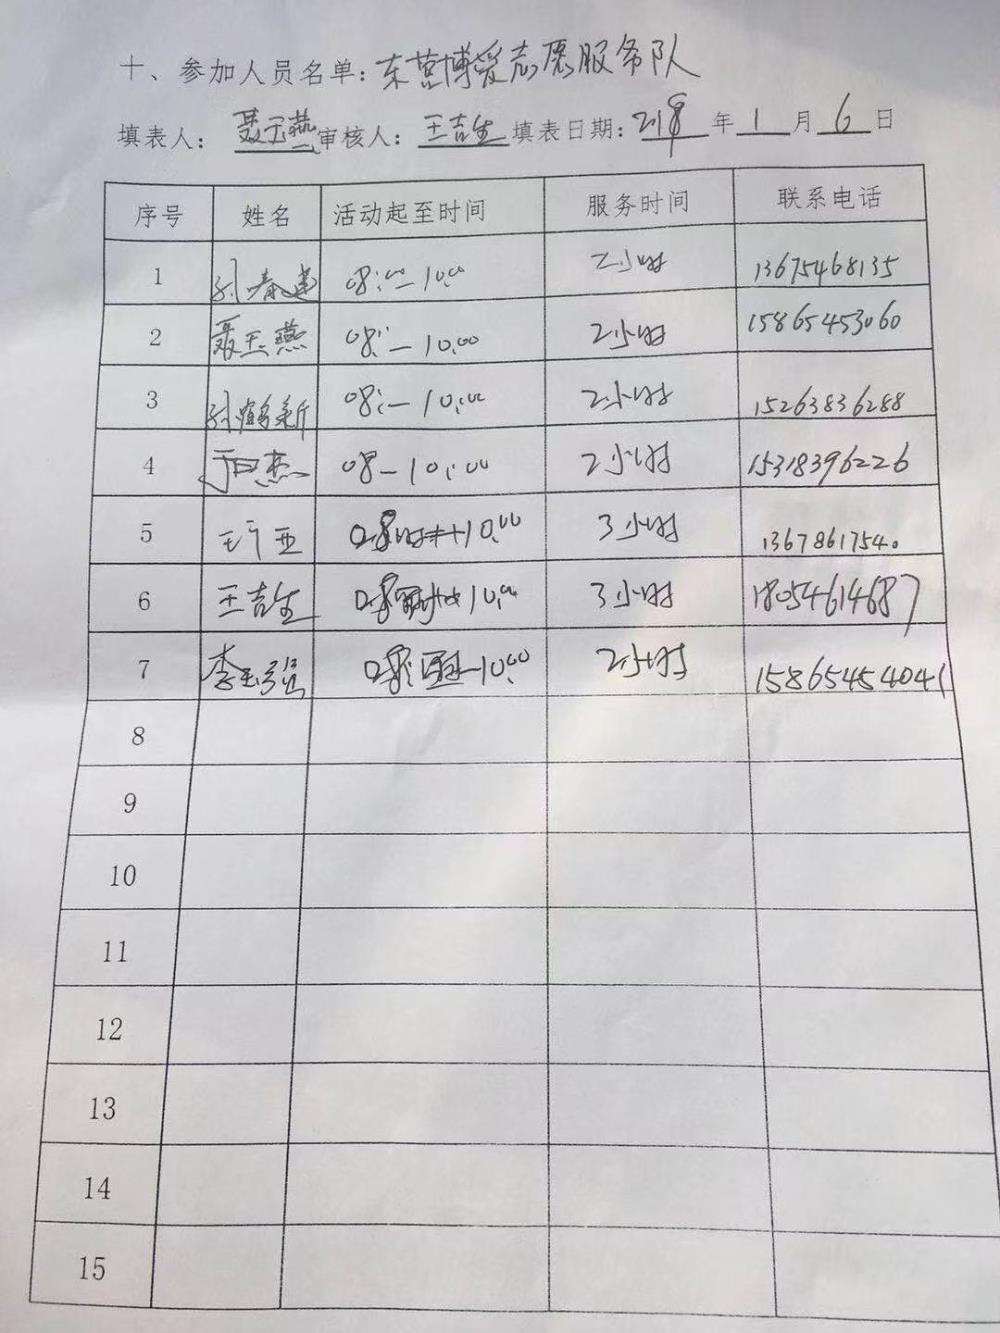 十、参加人员名单:东营博爱志愿服务队
填表人: 聂玉燕 审核人: 王吉生 填表日期: 2018 年 1 月 6 日
序号 姓名 活动起至时间 服务时间 联系电话
1 孙春莲 08:00—10:00 2小时 13675468135
2 聂玉燕 08:—10:00 2小时 15865453060
3 孙 新 08:—10:00 2小时 15263836288
4 杰 08—10:00 2小时 15318396226
5 王 亚 10:00 3小时 13678617540
6 王吉生 10:00 3小时 18054614687
7 李玉强 —10:00 2小时 15865454041
8
9
10
11
12
13
14
15